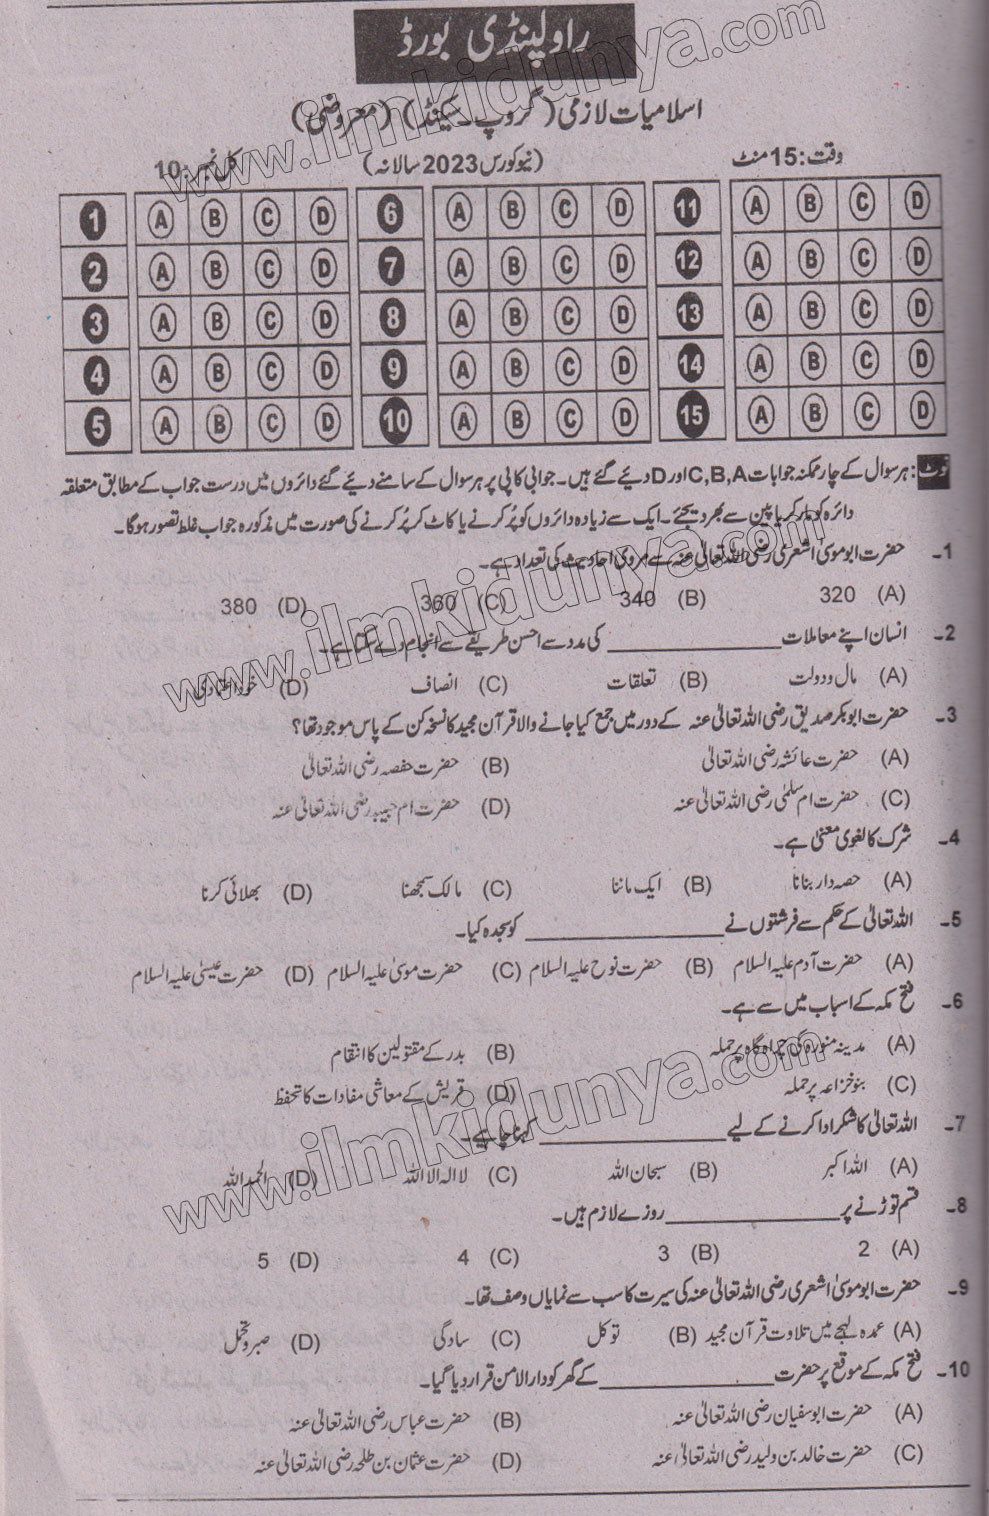 راولپنڈی بورڈ
اسلامیات لازمی (گروپ۔ سیکنڈ) (معروضی)
وقت: 15 منٹ (نیو کورس 2023 سالانہ) کل نمبر: 10
1 A B C D 6 A B C D 11 A B C D
2 A B C D 7 A B C D 12 A B C D
3 A B C D 8 A B C D 13 A B C D
4 A B C D 9 A B C D 14 A B C D
5 A B C D 10 A B C D 15 A B C D
نوٹ: ہر سوال کے چار ممکنہ جوابات C,B,A اور D دیئے گئے ہیں۔ جوابی کاپی پر ہر سوال کے سامنے دیئے گئے دائروں میں درست جواب کے مطابق متعلقہ
دائرہ کو مارکر یا پین سے بھر دیجئے۔ ایک سے زیادہ دائروں کو پُر کرنے یا کاٹ کر پُر کرنے کی صورت میں مذکورہ جواب غلط تصور ہوگا۔
1۔ حضرت ابو موسیٰ اشعری رضی اللہ تعالیٰ عنہ سے مروی احادیث کی تعداد ہے۔
(A) 320 (B) 340 (C) 360 (D) 380
2۔ انسان اپنے معاملات ____________ کی مدد سے احسن طریقے سے انجام دے سکتا ہے۔
(A) مال و دولت (B) تعلقات (C) انصاف (D) خود اعتمادی
3۔ حضرت ابوبکر صدیق رضی اللہ تعالیٰ عنہ کے دور میں جمع کیا جانے والا قرآن مجید کا نسخہ کن کے پاس موجود تھا؟
(A) حضرت عائشہ رضی اللہ تعالیٰ (B) حضرت حفصہ رضی اللہ تعالیٰ
(C) حضرت ام سلمیٰ رضی اللہ تعالیٰ عنہ (D) حضرت ام حبیبہ رضی اللہ تعالیٰ عنہ
4۔ شرک کا لغوی معنیٰ ہے۔
(A) حصہ دار بنانا (B) ایک ماننا (C) مالک سمجھنا (D) بھلائی کرنا
5۔ اللہ تعالیٰ کے حکم سے فرشتوں نے ____________ کو سجدہ کیا۔
(A) حضرت آدم علیہ السلام (B) حضرت نوح علیہ السلام (C) حضرت موسیٰ علیہ السلام (D) حضرت عیسیٰ علیہ السلام
6۔ فتح مکہ کے اسباب میں سے ہے۔
(A) مدینہ منورہ کی چراہ گاہ پر حملہ (B) بدر کے مقتولین کا انتقام
(C) بنو خزاعہ پر حملہ (D) قریش کے معاشی مفادات کا تحفظ
7۔ اللہ تعالیٰ کا شکر ادا کرنے کے لیے ____________ کہنا چاہیے۔
(A) اللہ اکبر (B) سبحان اللہ (C) لا الہ الا اللہ (D) الحمد اللہ
8۔ قسم توڑنے پر ____________ روزے لازم ہیں۔
(A) 2 (B) 3 (C) 4 (D) 5
9۔ حضرت ابو موسیٰ اشعری رضی اللہ تعالیٰ عنہ کی سیرت کا سب سے نمایاں وصف تھا۔
(A) عمدہ لہجے میں تلاوت قرآن مجید (B) توکل (C) سادگی (D) صبر و تحمل
10۔ فتح مکہ کے موقع پر حضرت ____________ کے گھر کو دارالامن قرار دیا گیا۔
(A) حضرت ابوسفیان رضی اللہ تعالیٰ عنہ (B) حضرت عباس رضی اللہ تعالیٰ عنہ
(C) حضرت خالد بن ولید رضی اللہ تعالیٰ عنہ (D) حضرت عثمان بن طلحہ رضی اللہ تعالیٰ عنہ
www.ilmkidunya.com
www.ilmkidunya.com
www.ilmkidunya.com